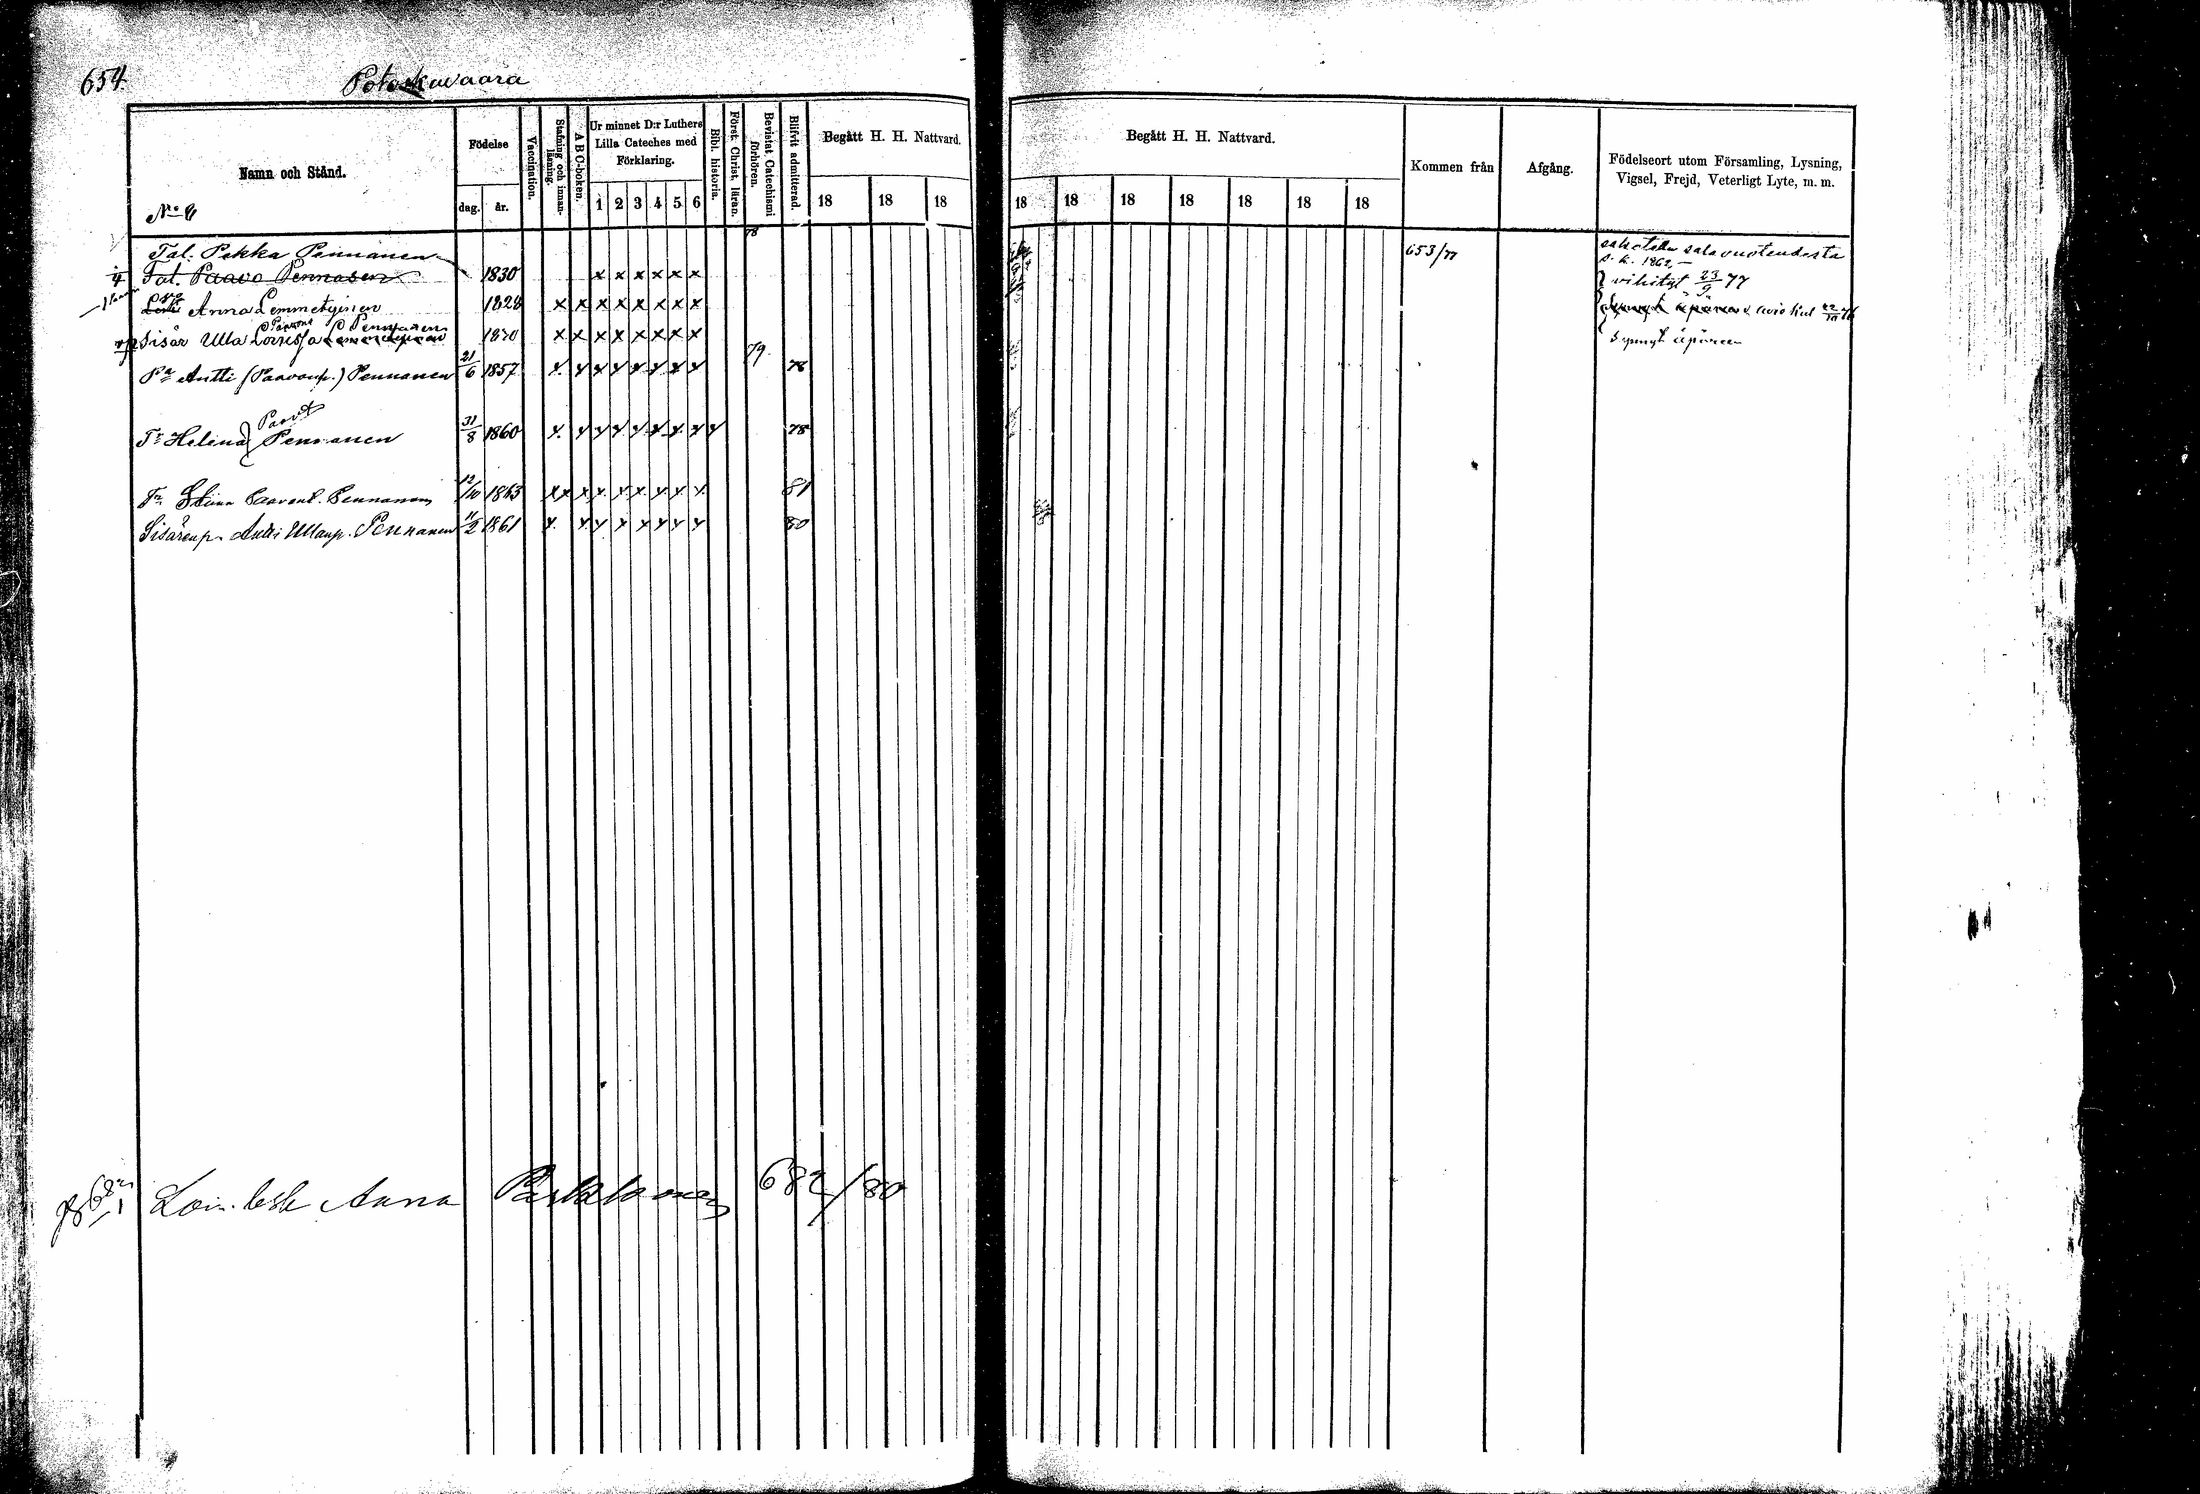 654.
Potoskavaara
Namn och Stånd.
Födelse
dag. år.
Vaccination.
Stafning och innanläsning.
A B C-boken.
Ur minnet D:r Luthers Lilla Cateches med Förklaring.
1 2 3 4 5 6
Bibl. historia.
Först. Christ. läran.
Bevistat Catechismi förhören.
Blifvit admitterad.
Begått H. H. Nattvard.
18 18 18
Begått H. H. Nattvard.
18 18 18 18 18 18 18
Kommen från
Afgång.
Födelseort utom Församling, Lysning, Vigsel, Frejd, Veterligt Lyte, m. m.
78
Tal. Pekka Pennanen 653/77
s. k. 1862.
Tal. Paavo Pennanen 1830 x x x x x x vihityt 23/9 77
Anna Lemmetyinen 1828 x x x x x x x x
Sisär Ulla Loviisa Pennanen 1830 x x x x x x x x synnyt äpären
Pa Antti (Paavonp.) Pennanen 21/6 1857 x x x x x x x x 79 76
Tr Helena Paavt Pennanen 31/8 1860 x x x x x x x x x 78
Tr Stiina Paavont. Pennanen 12/10 1863 x x x x x x x x x 81
Sisärenp. Antti Ullanp. Pennanen 11/2 1861 x x x x x x x x 80
Lois. lesk Anna 682/80